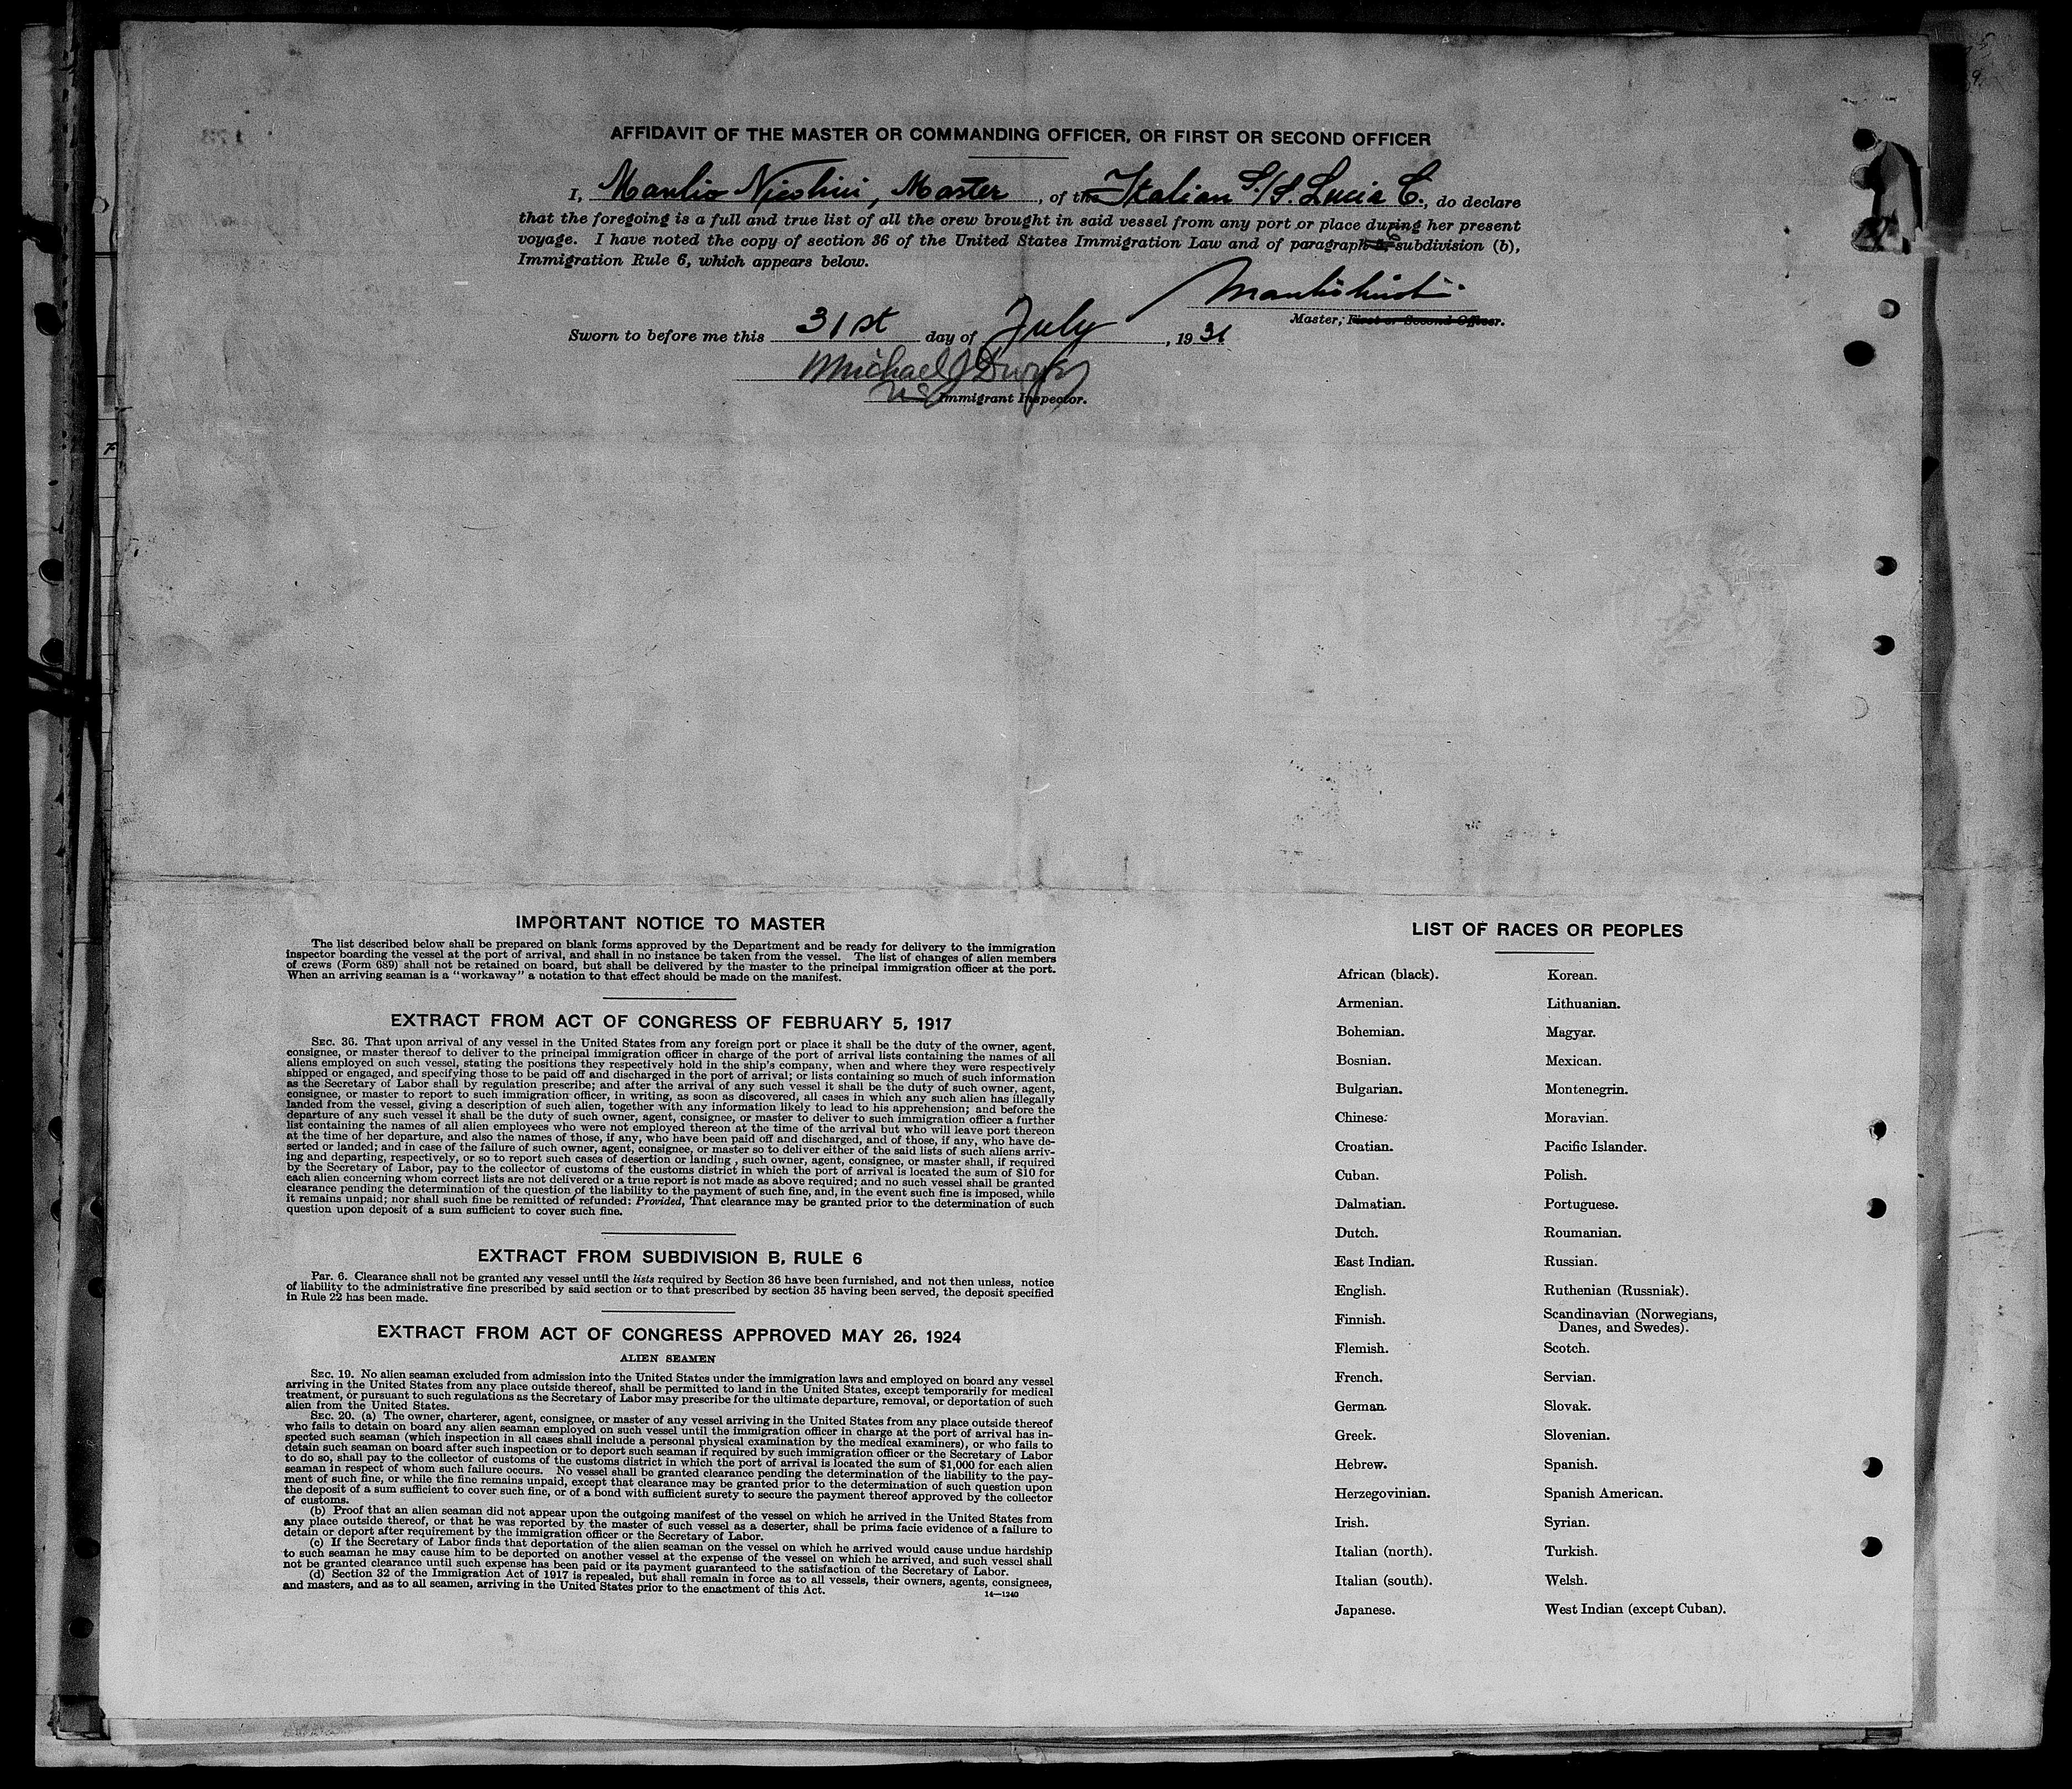 AFFIDAVIT OF THE MASTER OR COMMANDING OFFICER, OR FIRST OR SECOND OFFICER
I, Manlio Nicolini, Master, of the Italian S/S. Lucia C., do declare
that the foregoing is a full and true list of all the crew brought in said vessel from any port or place during her present
voyage. I have noted the copy of section 36 of the United States Immigration Law and of paragraph 6 subdivision (b),
Immigration Rule 6, which appears below.
Master, First or Second Officer.
Sworn to before me this 31st day of July, 1931
Michael J
Immigrant Inspector.
IMPORTANT NOTICE TO MASTER
The list described below shall be prepared on blank forms approved by the Department and be ready for delivery to the immigration
inspector boarding the vessel at the port of arrival, and shall in no instance be taken from the vessel. The list of changes of alien members
of crews (Form 689) shall not be retained on board, but shall be delivered by the master to the principal immigration officer at the port.
When an arriving seaman is a "workaway" a notation to that effect should be made on the manifest.
EXTRACT FROM ACT OF CONGRESS OF FEBRUARY 5, 1917
SEC. 36. That upon arrival of any vessel in the United States from any foreign port or place it shall be the duty of the owner, agent,
consignee, or master thereof to deliver to the principal immigration officer in charge of the port of arrival lists containing the names of all
aliens employed on such vessel, stating the positions they respectively hold in the ship's company, when and where they were respectively
shipped or engaged, and specifying those to be paid off and discharged in the port of arrival; or lists containing so much of such information
as the Secretary of Labor shall by regulation prescribe; and after the arrival of any such vessel it shall be the duty of such owner, agent,
consignee, or master to report to such immigration officer, in writing, as soon as discovered, all cases in which any such alien has illegally
landed from the vessel, giving a description of such alien, together with any information likely to lead to his apprehension; and before the
departure of any such vessel it shall be the duty of such owner, agent, consignee, or master to deliver to such immigration officer a further
list containing the names of all alien employees who were not employed thereon at the time of the arrival but who will leave port thereon
at the time of her departure, and also the names of those, if any, who have been paid off and discharged, and of those, if any, who have de-
serted or landed; and in case of the failure of such owner, agent, consignee, or master so to deliver either of the said lists of such aliens arriv-
ing and departing, respectively, or so to report such cases of desertion or landing , such owner, agent, consignee, or master shall, if required
by the Secretary of Labor, pay to the collector of customs of the customs district in which the port of arrival is located the sum of $10 for
each alien concerning whom correct lists are not delivered or a true report is not made as above required; and no such vessel shall be granted
clearance pending the determination of the question of the liability to the payment of such fine, and, in the event such fine is imposed, while
it remains unpaid; nor shall such fine be remitted or refunded: Provided, That clearance may be granted prior to the determination of such
question upon deposit of a sum sufficient to cover such fine.
EXTRACT FROM SUBDIVISION B, RULE 6
Par. 6. Clearance shall not be granted any vessel until the lists required by Section 36 have been furnished, and not then unless, notice
of liability to the administrative fine prescribed by said section or to that prescribed by section 35 having been served, the deposit specified
in Rule 22 has been made.
EXTRACT FROM ACT OF CONGRESS APPROVED MAY 26, 1924
ALIEN SEAMEN
SEC. 19. No alien seaman excluded from admission into the United States under the immigration laws and employed on board any vessel
arriving in the United States from any place outside thereof, shall be permitted to land in the United States, except temporarily for medical
treatment, or pursuant to such regulations as the Secretary of Labor may prescribe for the ultimate departure, removal, or deportation of such
alien from the United States.
SEC. 20. (a) The owner, charterer, agent, consignee, or master of any vessel arriving in the United States from any place outside thereof
who fails to detain on board any alien seaman employed on such vessel until the immigration officer in charge at the port of arrival has in-
spected such seaman (which inspection in all cases shall include a personal physical examination by the medical examiners), or who fails to
detain such seaman on board after such inspection or to deport such seaman if required by such immigration officer or the Secretary of Labor
to do so, shall pay to the collector of customs of the customs district in which the port of arrival is located the sum of $1,000 for each alien
seaman in respect of whom such failure occurs. No vessel shall be granted clearance pending the determination of the liability to the pay-
ment of such fine, or while the fine remains unpaid, except that clearance may be granted prior to the determination of such question upon
the deposit of a sum sufficient to cover such fine, or of a bond with sufficient surety to secure the payment thereof approved by the collector
of customs.
(b) Proof that an alien seaman did not appear upon the outgoing manifest of the vessel on which he arrived in the United States from
any place outside thereof, or that he was reported by the master of such vessel as a deserter, shall be prima facie evidence of a failure to
detain or deport after requirement by the immigration officer or the Secretary of Labor.
(c) If the Secretary of Labor finds that deportation of the alien seaman on the vessel on which he arrived would cause undue hardship
to such seaman he may cause him to be deported on another vessel at the expense of the vessel on which he arrived, and such vessel shall
not be granted clearance until such expense has been paid or its payment guaranteed to the satisfaction of the Secretary of Labor.
(d) Section 32 of the Immigration Act of 1917 is repealed, but shall remain in force as to all vessels, their owners, agents, consignees,
and masters, and as to all seamen, arriving in the United States prior to the enactment of this Act.
14—1240
LIST OF RACES OR PEOPLES
African (black).
Armenian.
Bohemian.
Bosnian.
Bulgarian.
Chinese.
Croatian.
Cuban.
Dalmatian.
Dutch.
East Indian.
English.
Finnish.
Flemish.
French.
German.
Greek.
Hebrew.
Herzegovinian.
Irish.
Italian (north).
Italian (south).
Japanese.
Korean.
Lithuanian.
Magyar.
Mexican.
Montenegrin.
Moravian.
Pacific Islander.
Polish.
Portuguese.
Roumanian.
Russian.
Ruthenian (Russniak).
Scandinavian (Norwegians,
Danes, and Swedes).
Scotch.
Servian.
Slovak.
Slovenian.
Spanish.
Spanish American.
Syrian.
Turkish.
Welsh.
West Indian (except Cuban).